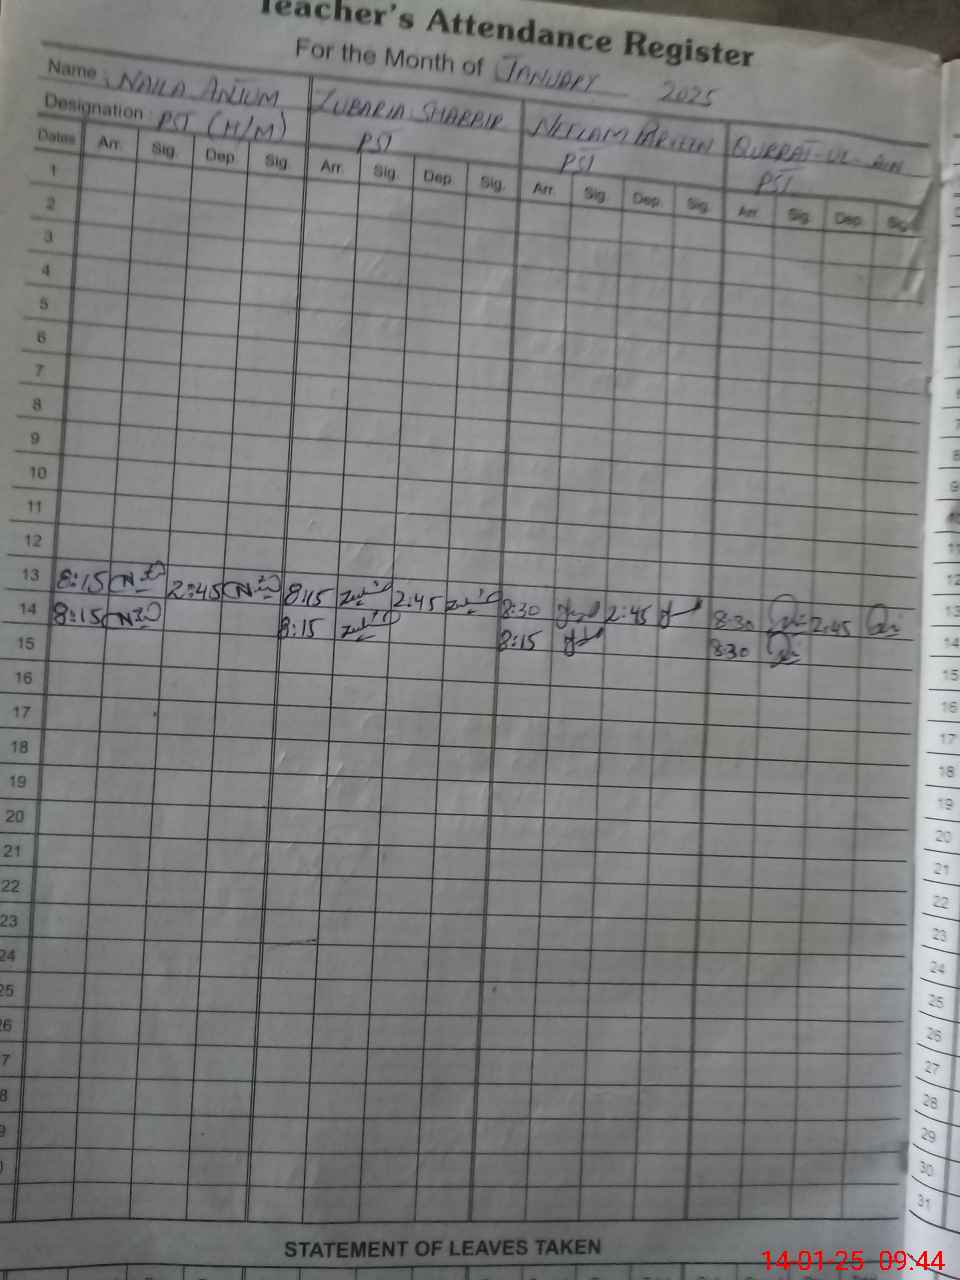 Teacher's Attendance Register
For the Month of JANUARY 2025
Name : NAILA ANJUM ZUBARIA SHABBIR NEELAM PARVEEN QURRAT-UL-AIN
Designation : PST (H/M) PST PST PST
Dates Arr. Sig. Dep. Sig. Arr. Sig. Dep. Sig. Arr. Sig. Dep. Sig. Arr. Sig. Dep. Sig.
1
2
3
4
5
6
7
8
9
10
11
12
13 8:15 2:45 8:15 2:45 8:30 2:45 8:30 2:45
14 8:15 8:15 8:15 8:30
15
16
17
18
19
20
21
22
23
24
25
26
7
8
9
STATEMENT OF LEAVES TAKEN
8
9
10
11
12
13
14
15
16
17
18
19
20
21
22
23
24
25
26
27
28
29
30
31
14-01-25 09:44